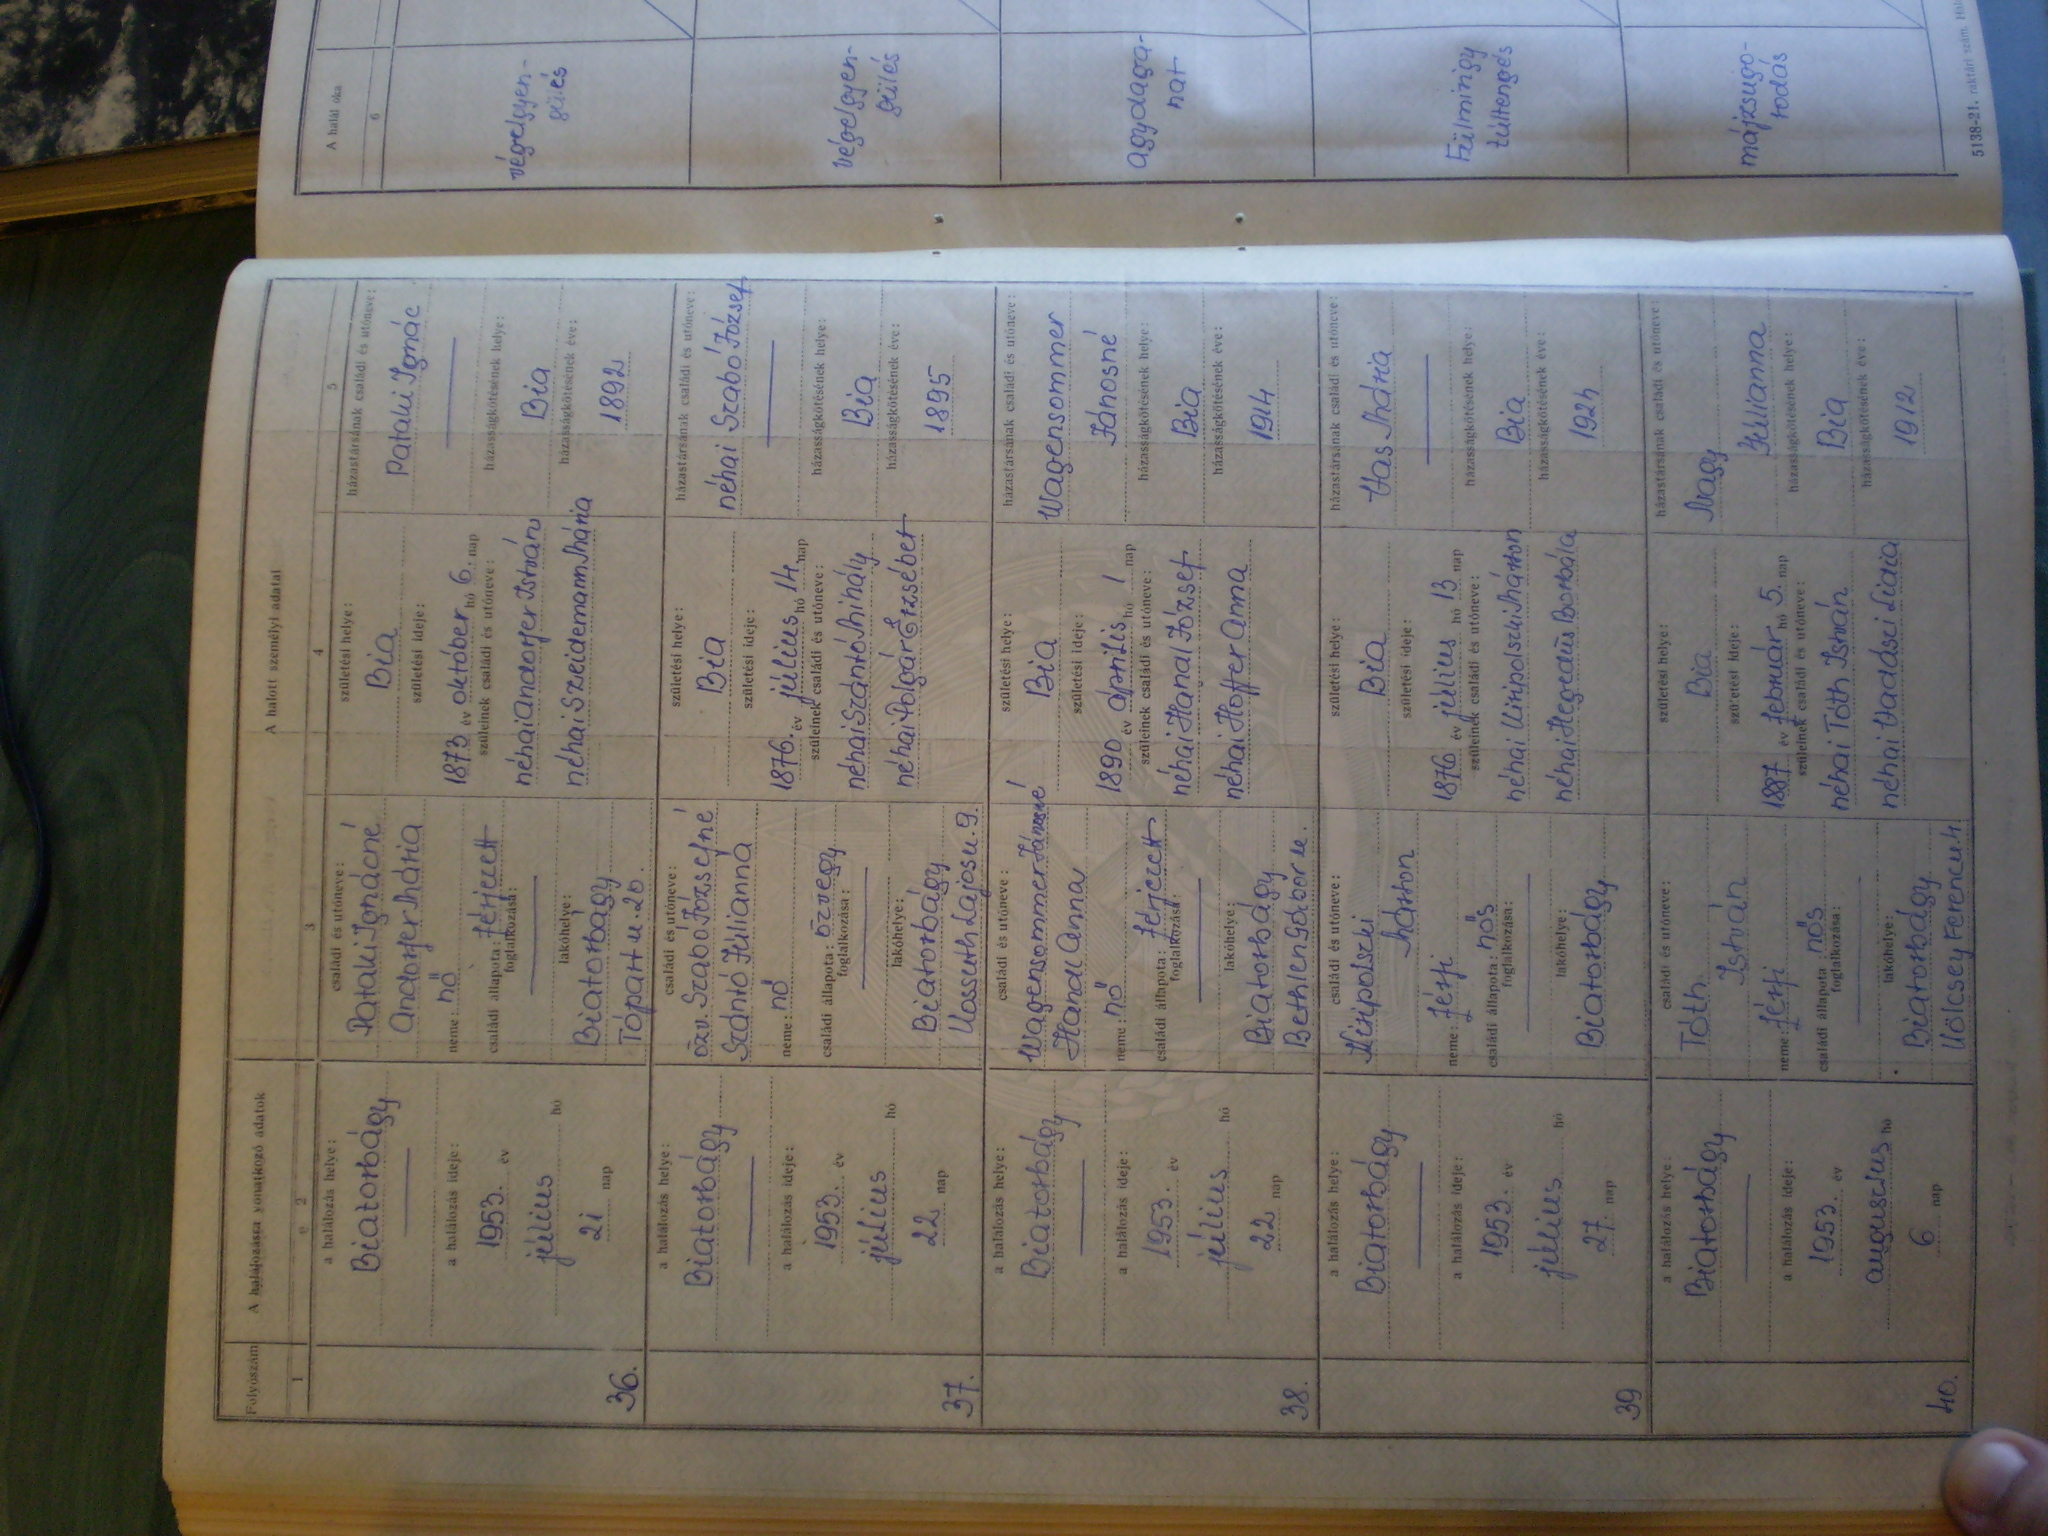 Folyószám
A halálozásra vonatkozó adatok
A halott személyi adatai
A halál oka
1
2
3
4
5
6
a halálozás helye:
Biatorbágy
a halálozás ideje:
1953. év
július hó
21 nap
36.
családi és utóneve:
Pataki Ignácné
Andorfer Mária
neme: nő
családi állapota: férjezett
foglalkozása:
lakóhelye:
Biatorbágy
Tópart u. 20.
születési helye:
Bia
születési ideje:
1873 év október hó 6. nap
szüleinek családi és utóneve:
néhai Andorfer István
néhai Szeidemann Mária
házastársának családi és utóneve:
Pataki Ignác
házasságkötésének helye:
Bia
házasságkötésének éve:
1892
végelgyen-
gülés
a halálozás helye:
Biatorbágy
a halálozás ideje:
1953. év
július hó
22 nap
37.
családi és utóneve:
özv. Szabó Józsefné
Szántó Julianna
neme: nő
családi állapota: özvegy
foglalkozása:
lakóhelye:
Biatorbágy
Kossuth Lajos u. 9.
születési helye:
Bia
születési ideje:
1876. év július hó 14. nap
szüleinek családi és utóneve:
néhai Szántó Mihály
néhai Polgár Erzsébet
házastársának családi és utóneve:
néhai Szabó József
házasságkötésének helye:
Bia
házasságkötésének éve:
1895
végelgyen-
gülés
a halálozás helye:
Biatorbágy
a halálozás ideje:
1953. év
július hó
22 nap
38.
családi és utóneve:
Wagensommer Jánosné
Hanal Anna
neme: nő
családi állapota: férjezett
foglalkozása:
lakóhelye:
Biatorbágy
Bethlen Gábor u.
születési helye:
Bia
születési ideje:
1890 év április hó 1 nap
szüleinek családi és utóneve:
néhai Hanal József
néhai Hoffer Anna
házastársának családi és utóneve:
Wagensommer
Jánosné
házasságkötésének helye:
Bia
házasságkötésének éve:
1914
agydaga-
nat
a halálozás helye:
Biatorbágy
a halálozás ideje:
1953. év
július hó
27 nap
39
családi és utóneve:
Kiripolszki
Márton
neme: férfi
családi állapota: nős
foglalkozása:
lakóhelye:
Biatorbágy
születési helye:
Bia
születési ideje:
1876 év július hó 13 nap
szüleinek családi és utóneve:
néhai Kiripolszki Márton
néhai Hegedüs Borbála
házastársának családi és utóneve:
Vas Mária
házasságkötésének helye:
Bia
házasságkötésének éve:
1924
túltengés
a halálozás helye:
Biatorbágy
a halálozás ideje:
1953 év
augusztus hó
6 nap
40.
családi és utóneve:
Tóth
István
neme: férfi
családi állapota: nős
foglalkozása:
lakóhelye:
Biatorbágy
Kölcsey Ferenc u. 4.
születési helye:
Bia
születési ideje:
1887 év február hó 5. nap
szüleinek családi és utóneve:
néhai Tóth István
néhai Vadászi Lidia
házastársának családi és utóneve:
Nagy
Julianna
házasságkötésének helye:
Bia
házasságkötésének éve:
1912
májzsugo-
rodás
5138-21. raktári szám.